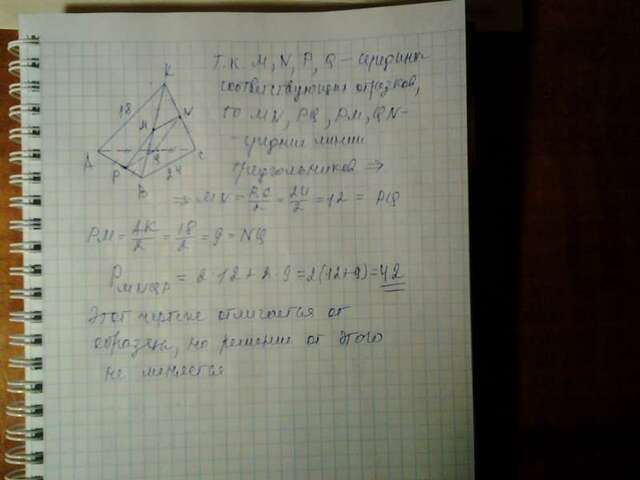 Т.К. M, N, P, Q – середины
соответствующих отрезков,
то MN, PQ, PM, QN –
– средние линии
треугольников ⇒
⇒ MN = BC/2 = 24/2 = 12 = PQ
PM = AK/2 = 18/2 = 9 = NQ
P MNQP = 2·12 + 2·9 = 2(12+9) = 42
Этот чертеж отличается от
образца, но решение от этого
не меняется
K
18
M
N
A
Q
C
P
B
24